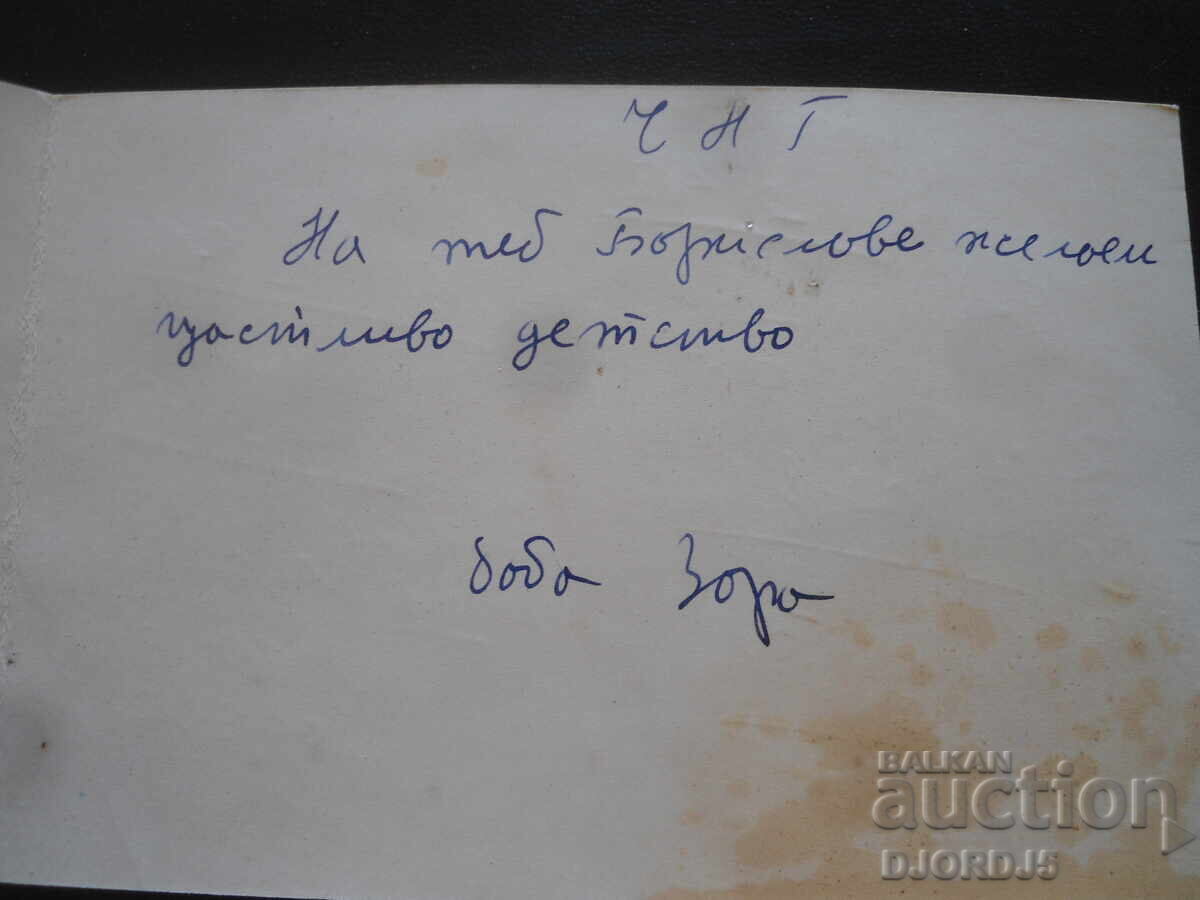 ЧНГ
На теб Бориславе желаем
щастливо детство
баба Зора
BALKAN
auction
DJORDJ5